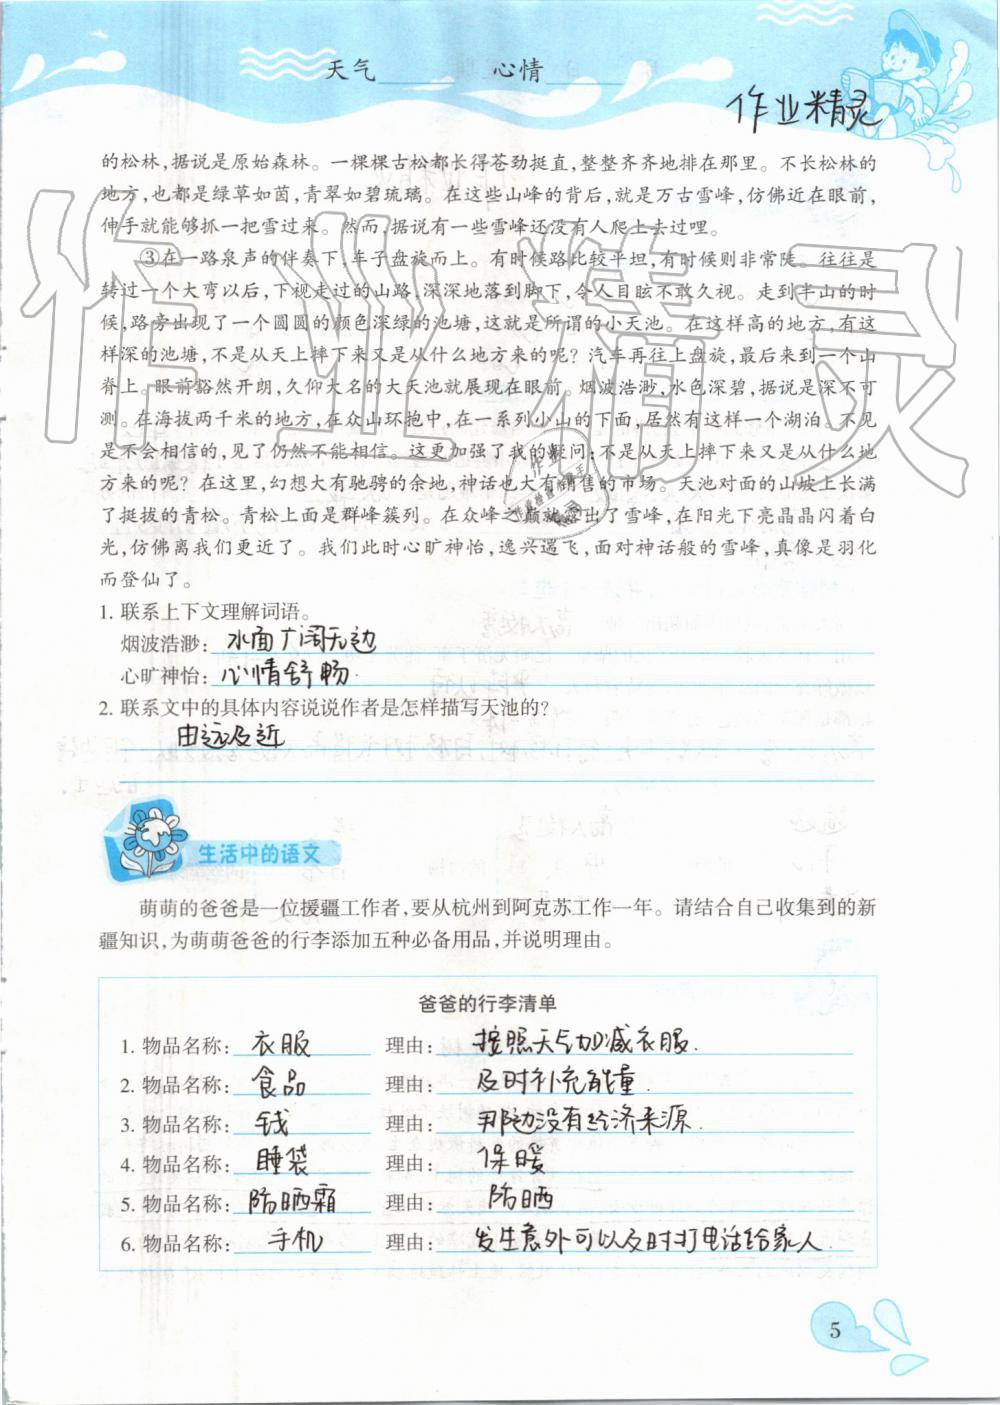 天气 心情
作业精灵
的松林,据说是原始森林。一棵棵古松都长得苍劲挺直,整整齐齐地排在那里。不长松林的
地方,也都是绿草如茵,青翠如碧琉璃。在这些山峰的背后,就是万古雪峰,仿佛近在眼前,
伸手就能够抓一把雪过来。然而,据说有一些雪峰还没有人爬上去过哩。
③在一路泉声的伴奏下,车子盘旋而上。有时候路比较平坦,有时候则非常陡。往往是
转过一个大弯以后,下视走过的山路,深深地落到脚下,令人目眩不敢久视。走到半山的时
候,路旁出现了一个圆圆的颜色深绿的池塘,这就是所谓的小天池。在这样高的地方,有这
样深的池塘,不是从天上摔下来又是从什么地方来的呢?汽车再往上盘旋,最后来到一个山
脊上。眼前豁然开朗,久仰大名的大天池就展现在眼前。烟波浩渺,水色深碧,据说是深不可
测。在海拔两千米的地方,在众山环抱中,在一系列小山的下面,居然有这样一个湖泊。不见
是不会相信的,见了仍然不能相信。这更加强了我的疑问:不是从天上摔下来又是从什么地
方来的呢?在这里,幻想大有驰骋的余地,神话也大有销售的市场。天池对面的山坡上长满
了挺拔的青松。青松上面是群峰簇列。在众峰之巅就露出了雪峰,在阳光下亮晶晶闪着白
光,仿佛离我们更近了。我们此时心旷神怡,逸兴遄飞,面对神话般的雪峰,真像是羽化
而登仙了。
1. 联系上下文理解词语。
烟波浩渺: 水面广阔无边
心旷神怡: 心情舒畅
2. 联系文中的具体内容说说作者是怎样描写天池的?
由远及近
生活中的语文
萌萌的爸爸是一位援疆工作者,要从杭州到阿克苏工作一年。请结合自己收集到的新
疆知识,为萌萌爸爸的行李添加五种必备用品,并说明理由。
爸爸的行李清单
1. 物品名称: 衣服 理由: 按照天气加减衣服.
2. 物品名称: 食品 理由: 及时补充能量.
3. 物品名称: 钱 理由: 那边没有经济来源
4. 物品名称: 睡袋 理由: 保暖
5. 物品名称: 防晒霜 理由: 防晒
6. 物品名称: 手机 理由: 发生意外可以及时打电话给家人.
5
作业精灵